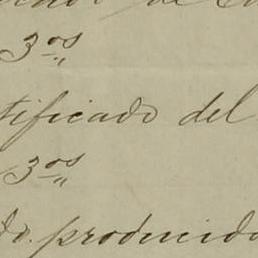 3os
tificado del
3os
do. producido